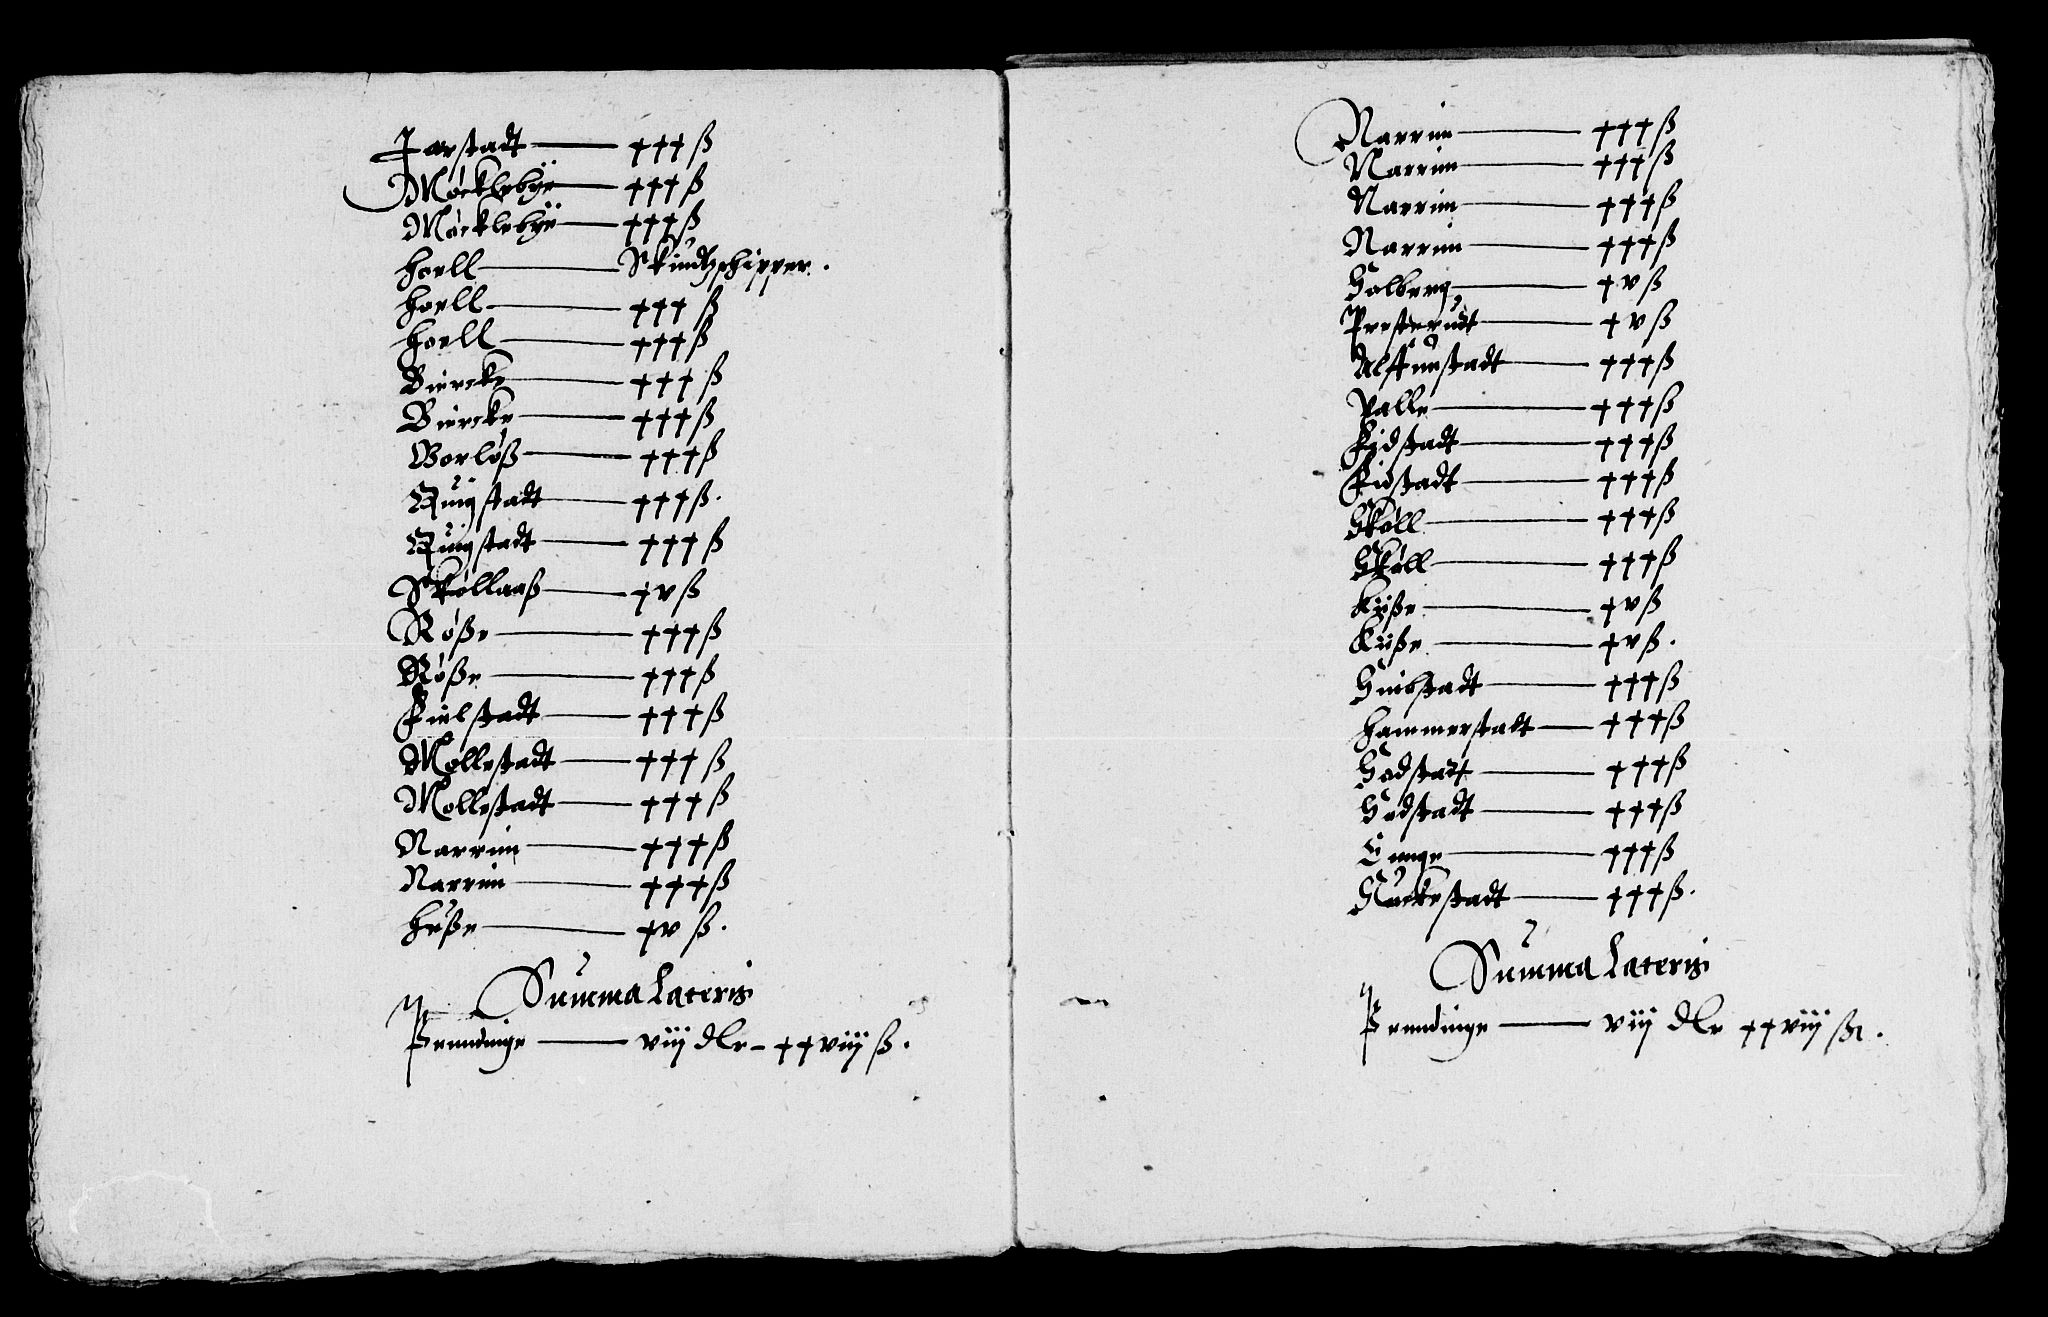 Jarstadt — xxx ß
Möcklebye — xxx ß
Möcklebye — xxx ß
Hoell — Skůdtzschipper.
Hoell — xxx ß
Hoell — xxx ß
Biercke — xxx ß
Biercke — xxx ß
Borløß — xxx ß
Ringstadt — xxx ß.
Ringstadt — xxx ß
Skøllaaß — xv ß
Røße — xxx ß
Røße — xxx ß
Fielstadt — xxx ß
Mollestadt — xxx ß
Mollestadt — xxx ß
Narrim — xxx ß
Narrim — xxx ß
Huße — xv ß.
Summa Lateris
Penndinge — viij dlr – xxviij ß.
Narrim — xxx ß
Narrim — xxx ß
Narrim — xxx ß
Narrim — xxx ß
Solberg — xv ß
Presterudt — xv ß
Alffůnstadt — xxx ß
Valle — xxx ß
Fidstadt — xxx ß
Fidstadt — xxx ß
Skøll — xxx ß
Skøll — xxx ß
Kiiße — xv ß
Kiiße — xv ß.
Simbstadt — xxx ß
Hammerstadt — xxx ß
Sodstadt — xxx ß
Sodstadt — xxx ß
Lunge — xxx ß
Sůckestadt — xxx ß.
Summa Lateris
Penndinge — viij dlr xxviij ß.